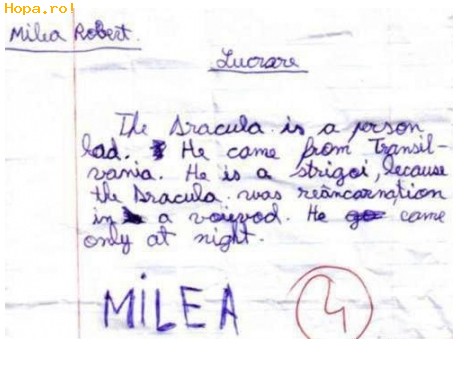 Hopa.ro!
Milea Robert.
Lucrare
The Dracula is a person
bad. He came from Transil-
vania. He is a strigoi, because
the Dracula was reâncarnation
in a voivod. He came
only at night.
MiLEA
4